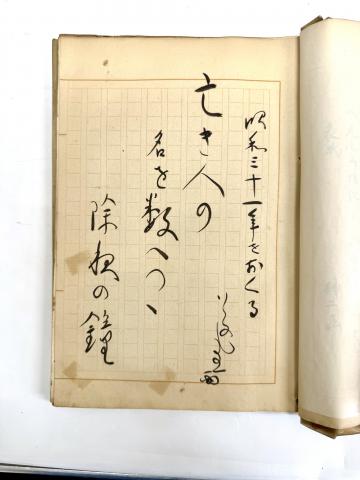 昭和三十一年をおくる
亡き人の
名を数へつゝ
除夜の鐘